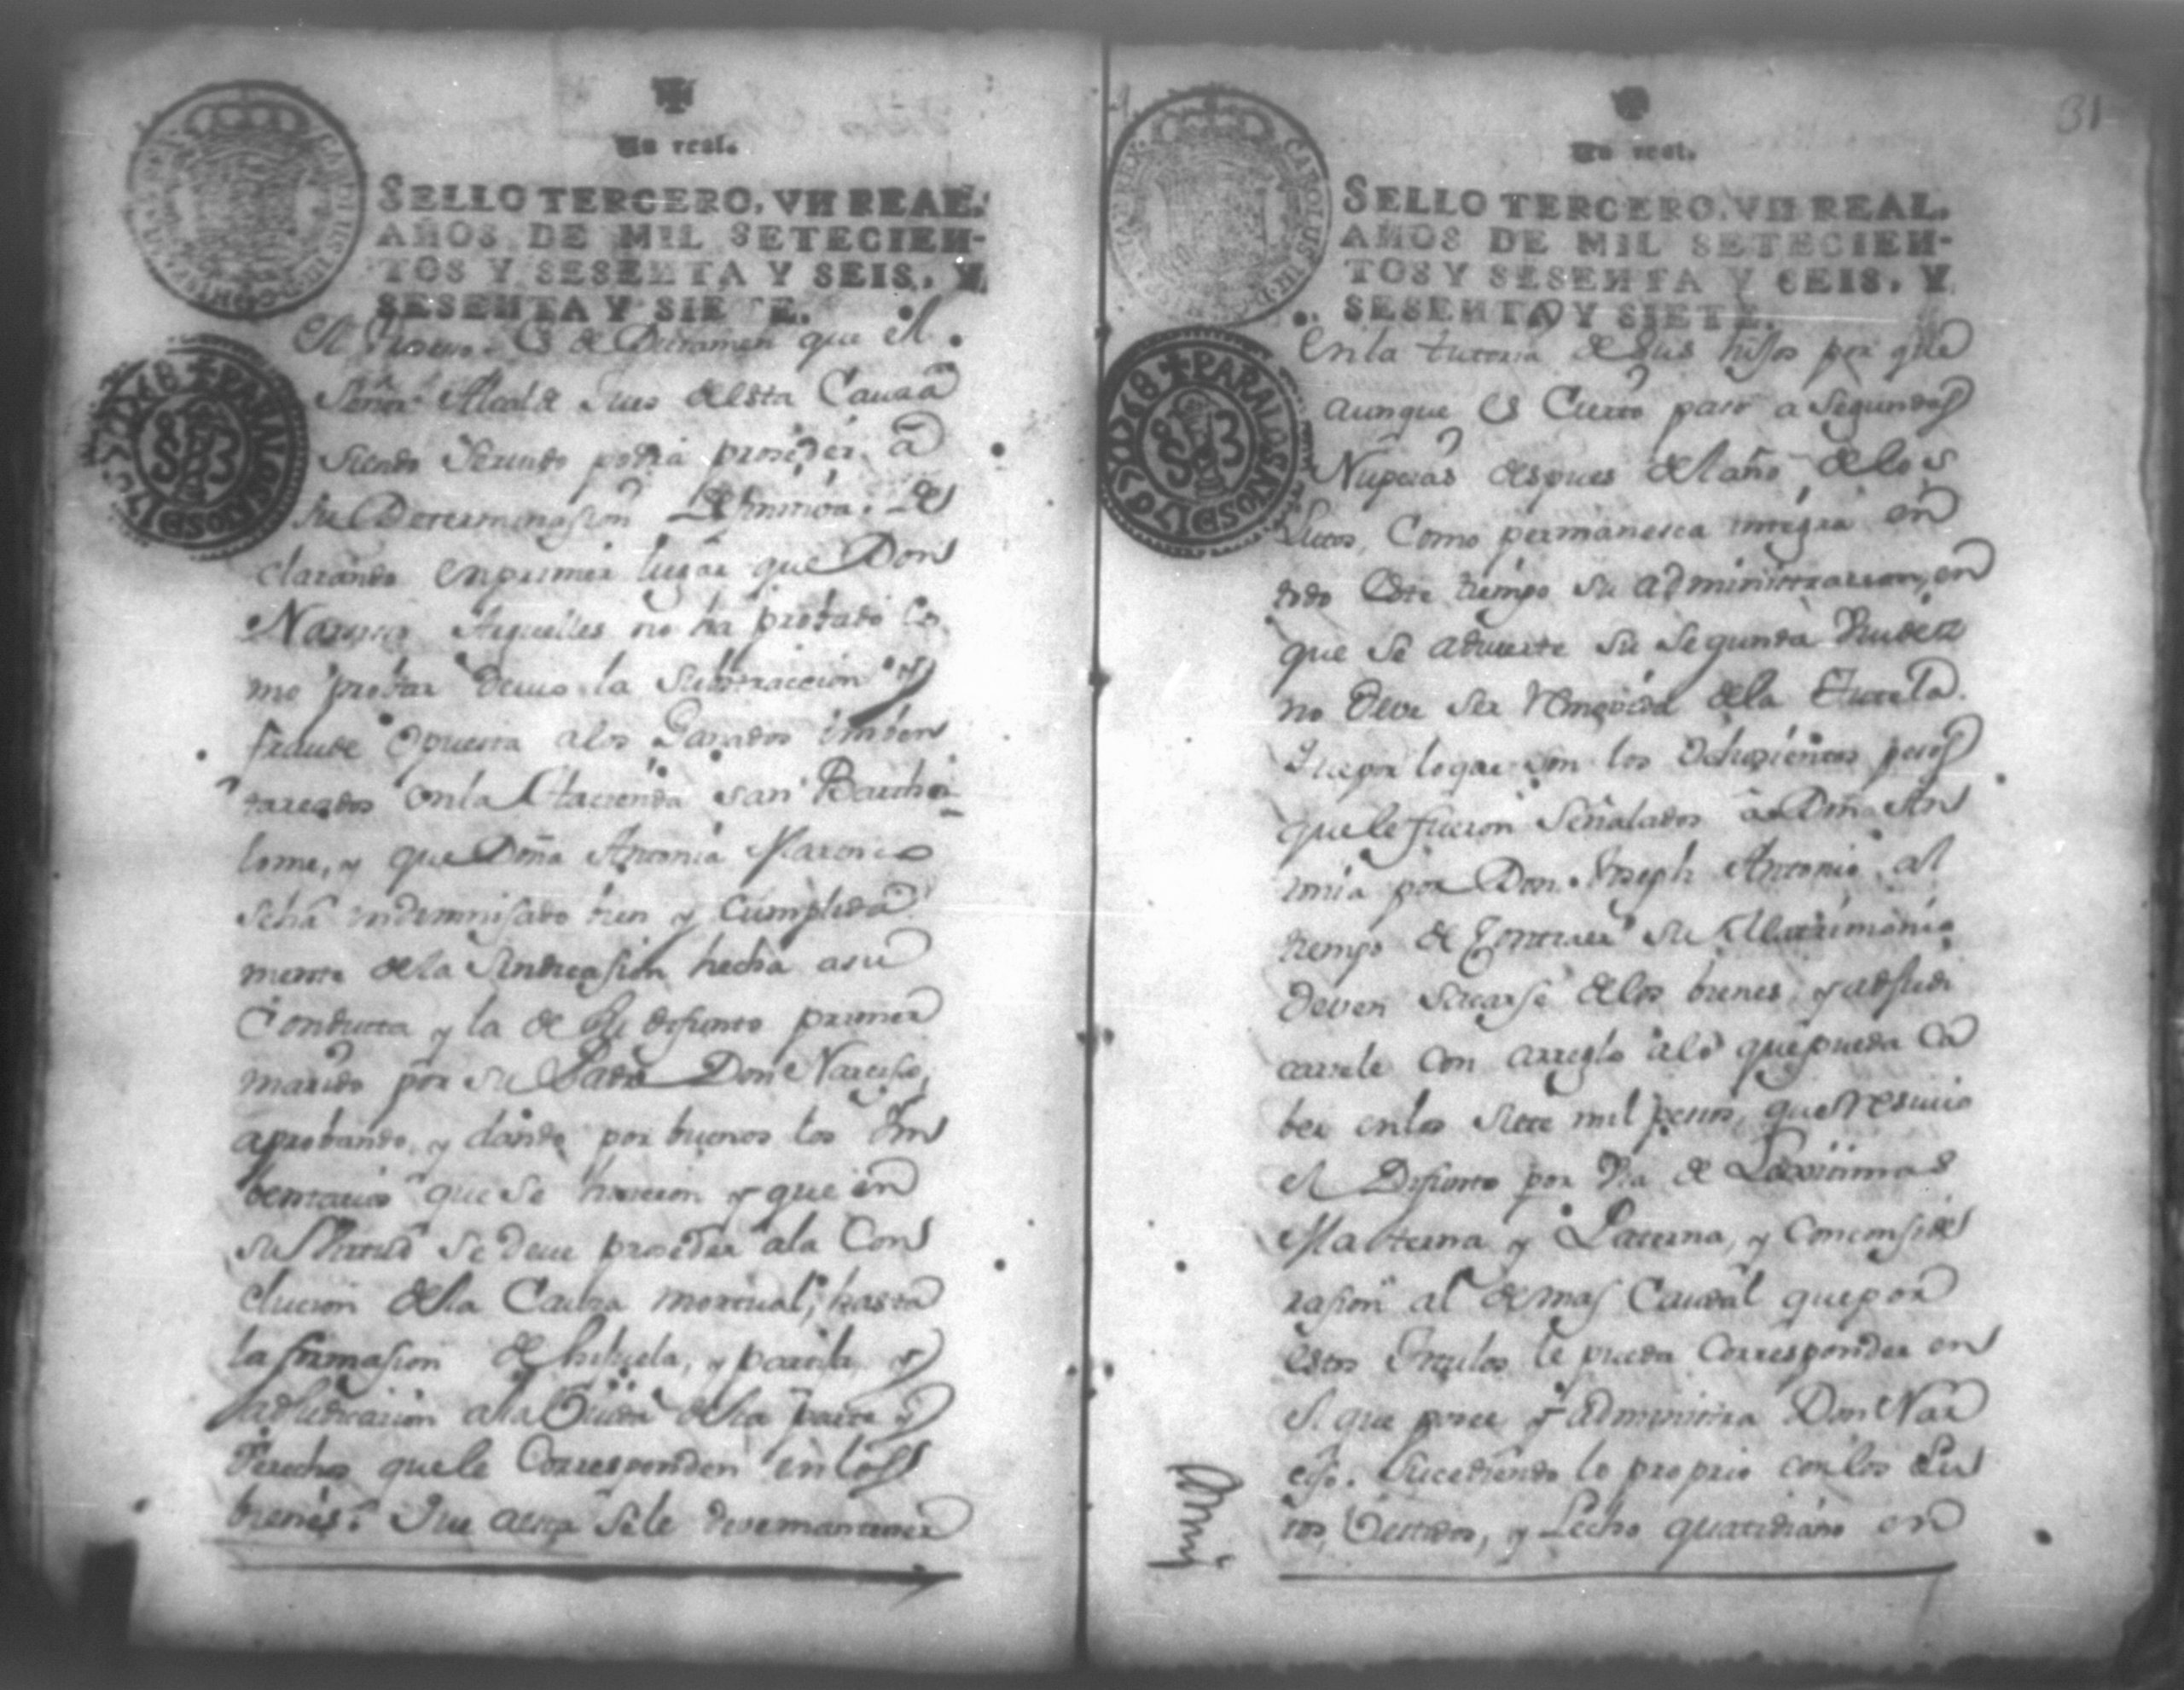 Un real.
SELLO TERCERO. VN REAL.
AÑOS DE MIL SETECIEN-
TOS Y SESENTA Y SEIS, Y
SESENTA Y SIETE.
El es de Dictamen que el
Señor Alcalde Jues de esta Causa
siendo servido podrá proseder â
su Determinasion Definitiva. De
clarando en primer lugar que Don
Narciso Arguelles no ha probado co
mo probar devio la substraccion y
fraude opuesta a los Ganados imben
tareados en la Hacienda san Bartho
lome, y que Doña Antonia
se ha indemnisado bien y cumplida
mente de la Sindicasion hecha a su
Conducta y la de su difunto primer
marido por su Padre Don Narciso,
aprobando, y dando por buenos los Im
bentarios que se hicieron y que en
su Virtud se deve proseder a la Con
clucion de la Causa mortual, hasta
la formasion de hijuela, y
adjudicacion a la Viuda de la parte y
Derechos que le Corresponden en los
bienes. Que a esta se le deve mantener
31
Un real.
SELLO TERCERO. VN REAL.
AÑOS DE MIL SETECIEN-
TOS Y SESENTA Y SEIS, Y
SESENTA Y SIETE.
PARA LOS AÑOS DE
En la tutoria de sus hijos por que
aunque es Cierto paso a segundas
Nupcias despues del año de los
Lutos, Como permanesca integra en
todo este tiempo su administracion, en
que se advierte su segunda Viudez
no deve ser removida de la Tutela.
Que por lo que son los Ochosientos pesos
que le fueron Señalados â Dña An
tonia por Don Joseph Antonio al
tiempo de Contraer su Matrimonio
deven sacarse de los bienes, y adjudi
carsele con arreglo a lo que pueda ca
ber en los siete mil pesos, que resivio
el Difunto por Via de Lexitimas
Materna y Paterna, y con conside
rasion al demas Caudal que por
estos Titulos le pueda Corresponder en
el que posee y administra Don Nar
ciso. Sucediendo lo proprio con los Lu
tos, Vestidos, y Lecho quotidiano en